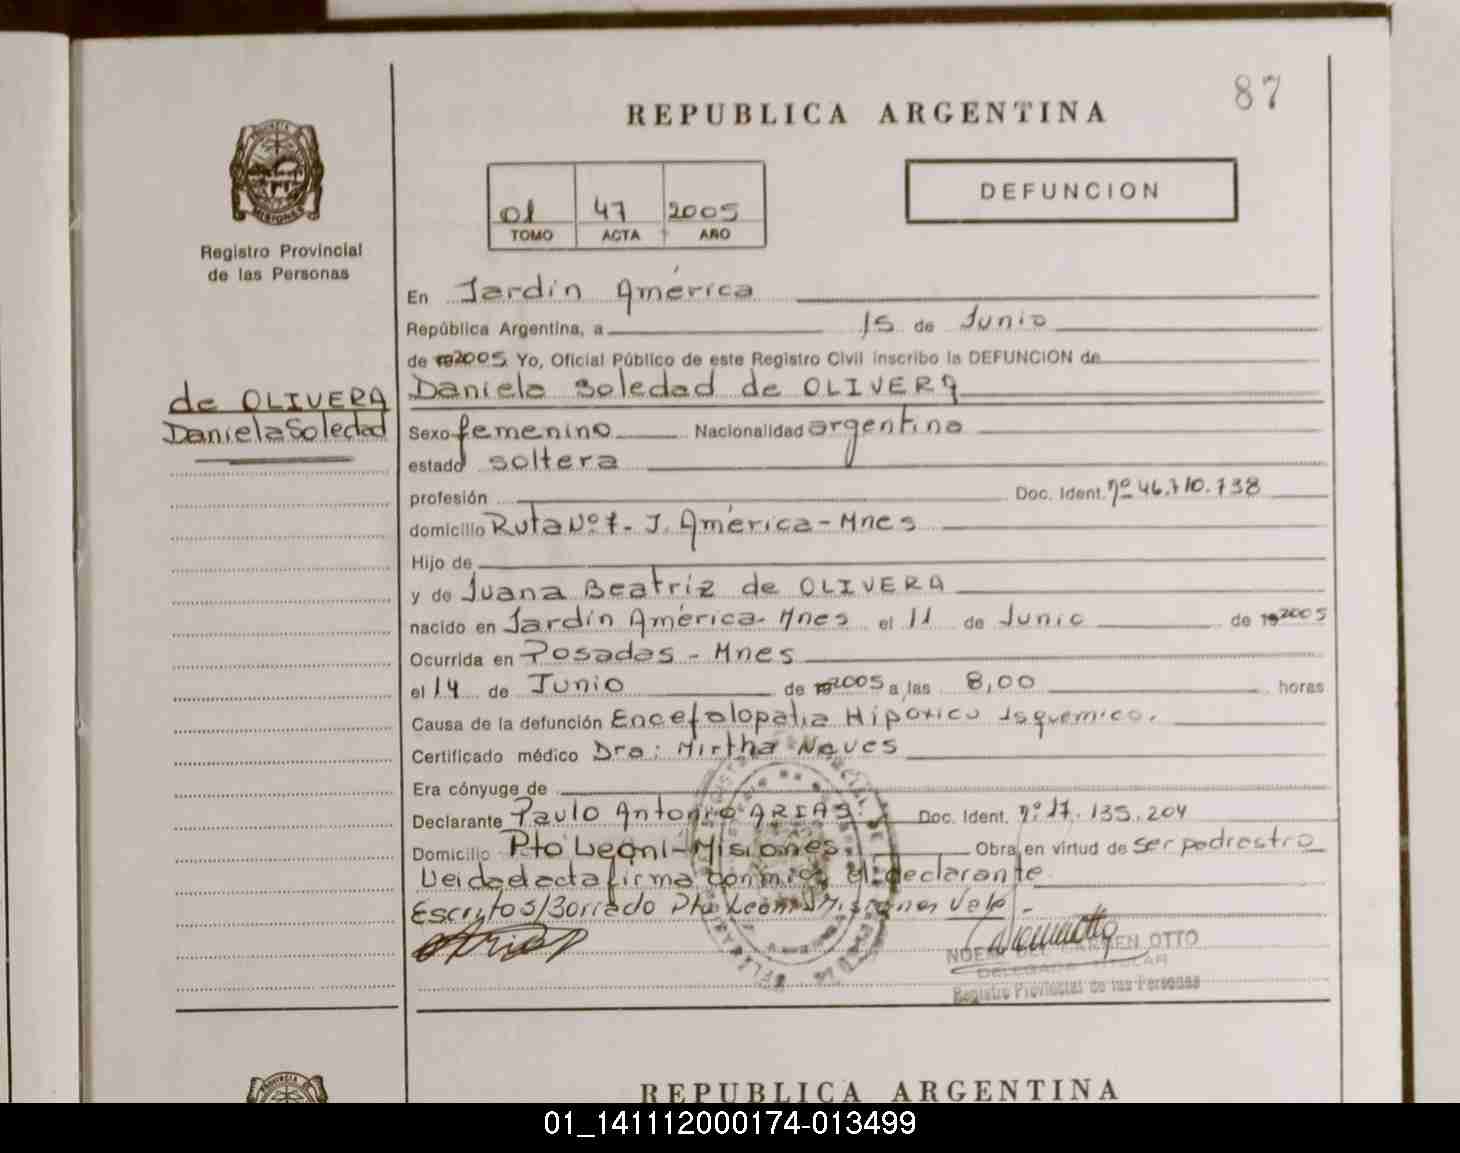 87
REPUBLICA ARGENTINA
DEFUNCION
01 47 2005
TOMO ACTA AÑO
PROVINCIA DE
MISIONES
Registro Provincial
de las Personas
de OLIVERA
Daniela Soledad
En Jardín América
República Argentina, a 15 de Junio
de 192005 Yo, Oficial Público de este Registro Civil inscribo la DEFUNCION de
Daniela Soledad de OLIVERA
Sexo femenino Nacionalidad argentina
estado soltera
profesión Doc. Ident. nº 46.710.738
domicilio Ruta Nº 7. J. América - Mnes
Hijo de
y de Juana Beatriz de OLIVERA
nacido en Jardín América - Mnes el 11 de Junio de 192005
Ocurrida en Posadas - Mnes
el 14 de Junio de 192005 a las 8,00 horas
Causa de la defunción Encefalopatia Hipoxico Isquemico.
Certificado médico Dra: Mirtha Neves
Era cónyuge de
Declarante Paulo Antonio ARIAS. Doc. Ident. nº 17.135.204
Domicilio Pto Leoni - Misiones. Obra en virtud de ser padrastro
Leida el acta firma conmigo el declarante
Escritos/Borrado Pto Leoni Misiones Vale -
NOEMI DEL CARMEN OTTO
DELEGADA TITULAR
Registro Provincial de las Personas
REPUBLICA ARGENTINA
PROVINCIA DE
01_141112000174-013499